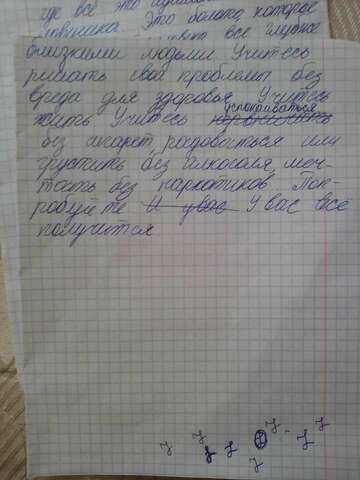 где всё это
Это болото, которое
всё глубже
близкими людьми Учитесь
решать свои проблемы без
вреда для здоровья Учитесь
успокаиваться
жить Учитесь
без сигарет, радоваться или
грустить без алкоголя, меч-
тать без наркотиков Поп-
робуйте И у вас У вас всё
получится
У У У У У У У У